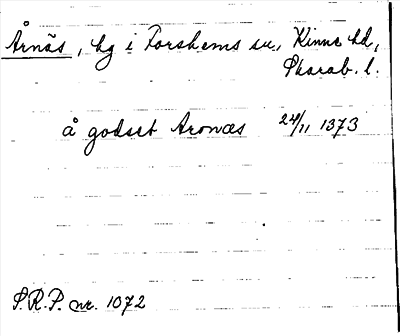 Årnäs, hg i Forshems sn., Kinne hd,
Skarab. l.
å godset Aronæs 24/11 1373
S.R.P. nr. 1072